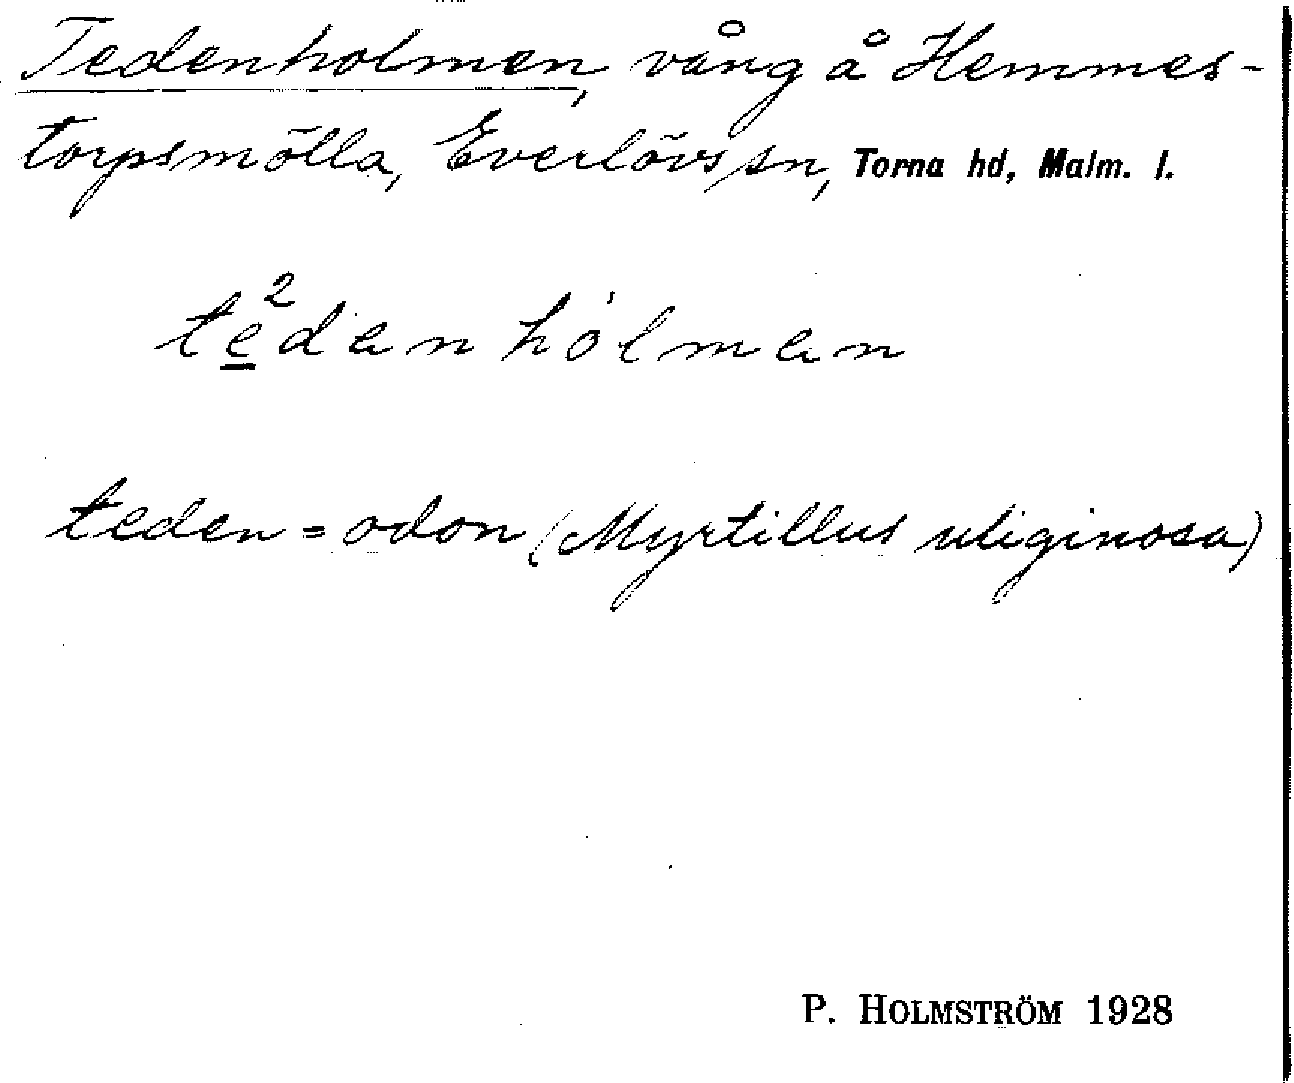 Tedenholmen, vång å Hemmes-
torpsmölla, Everlövs sn, Torna hd, Malm. l.
te̲²dan hòlman
teden = odon (Myrtillus uliginosa)
P. HOLMSTRÖM 1928